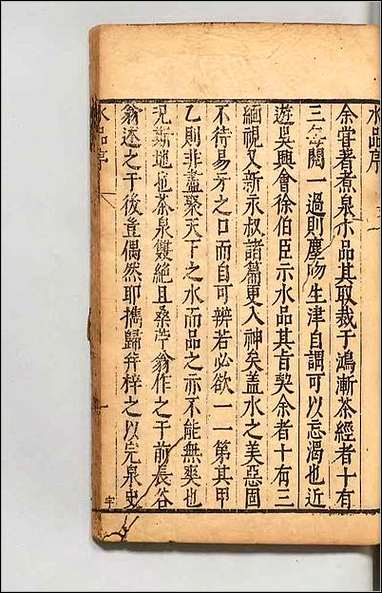 水品序
余嘗著煮泉小品其取裁于鴻漸茶經者十有
三每閱一過則塵吻生津自謂可以忘渴也近
遊吳興會徐伯臣示水品其旨契余者十有三
緬視又新永叔諸篇更入神矣蓋水之美惡固
不待易牙之口而自可辨若必欲一一第其甲
乙則非盡聚天下之水而品之亦不能無爽也
况斯地也茶泉雙絕且桑苧翁作之于前長谷
翁述之于後豈偶然耶攜歸并梓之以完泉史
水品序